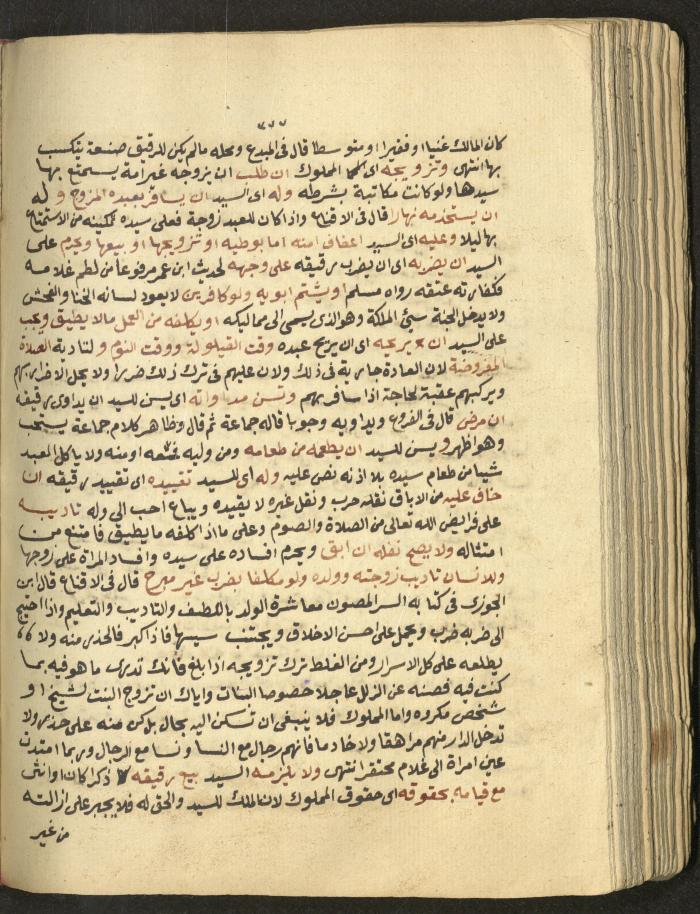 كان المالك غنيا او فقيرا او متوسطا قال في المبدع ومحله مالم يكن للرقيق صنعة يتكسب
بها انتهى وتزويجه اى المملوك ان طلب ان يزوجه غير امة يستمتع بها
سيدها ولو كانت مكاتبة بشرطه وله اى السيد ان يسافر بعبده المزوج وله
ان يستخدمه نهارا قال في الاقناع واذا كان للعبد زوجة فعلى سيده تمكينه من الاستمتاع
بها ليلا وعليه اى السيد اعفاف امته اما بوطيه او تزويجها او بيعها ويحرم على
السيد ان يضربه اى ان يضرب رقيقه على وجهه لحديث ابن عمر مرفوعا من لطم غلامه
فكفارته عتقه رواه مسلم او يشتم ابويه ولو كافرين لا يعود لسانه الخنا والفحش
ولا يدخل الجنة سيئ الملكة وهو الذى يسئ الى مماليكه او يكلفه من العمل ما لا يطيق ويجب
على السيد ان يريحه اى ان يريح عبده وقت القيلولة ووقت النوم ولتادية الصلاة
المفروضة لان العادة جارية في ذلك ولان عليهم في ترك ذلك ضررا ولا يحل الاضرار بهم
ويركبهم عقبة لحاجة اذا سافر بهم وتسن مداواته اى يسن للسيد ان يداوى رقيقه
ان مرض قال في الفروع ويداويه وجوبا قاله جماعة ثم قال وظاهر كلام جماعة يستحب
وهو اظهر ويسن للسيد ان يطعمه من طعامه ومن وليه فمعه او منه ولا ياكل العبد
شيا من طعام سيده بلا اذنه نص عليه وله اى للسيد تقييده اى تقييد رقيقه ان
خاف عليه من الاباق نقله حرب ونقل غيره لا يقيده ويباع احب الى وله تاديبه
على فرايض الله تعالى من الصلاة والصوم وعلى ما اذا كلفه ما يطيق فامتنع من
امتثاله ولا يصح نفله ان ابق ويحرم افساده على سيده وافساد المراة على زوجها
وللانسان تاديب زوجته وولده ولو مكلفا بضرب غير مبرح قال في الاقناع قال ابن
الجوزى في كتابه السر المصون معاشرة الولد باللطف والتاديب والتعليم واذا احتيج
الى ضربه ضرب ويحمل على احسن الاخلاق ويجتنب سيئها فاذا كبر فالحذر منه ولا
يطلعه على كل الاسرار ومن الغلط ترك تزويجه اذا بلغ فانك تدرى ما هو فيه بما
كنت فيه فصنه عن الزلل عاجلا خصوصا البنات واياك ان تزوج البنت لشيخ او
شخص مكروه واما المملوك فلا ينبغى ان تسكن اليه بحال بل كن منه على حذر ولا
تدخل الدار منهم مراهقا ولا خادما فانهم رجال مع النسا ونسا مع الرجال وربما امتدت
عين امراة الى غلام محتقر انتهى ولا يلزمه السيد بيع رقيقه ذكرا كان او انثى
مع قيامه بحقوقه اى حقوق المملوك لان الملك للسيد والحق له فلا يجبر على ازالته
من غير